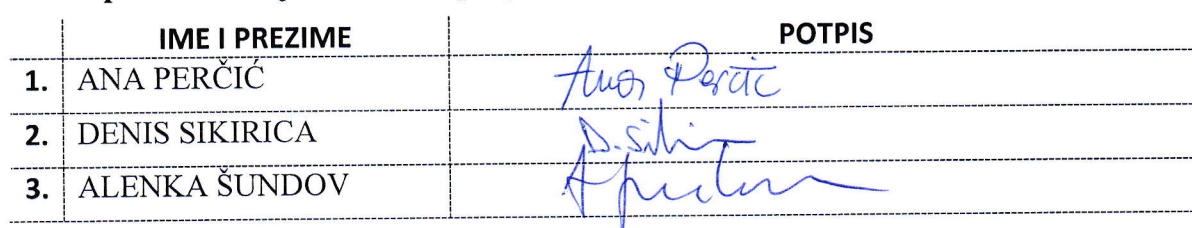 IME I PREZIME POTPIS
1. ANA PERČIĆ Ana Perčić
2. DENIS SIKIRICA D. Siki
3. ALENKA ŠUNDOV